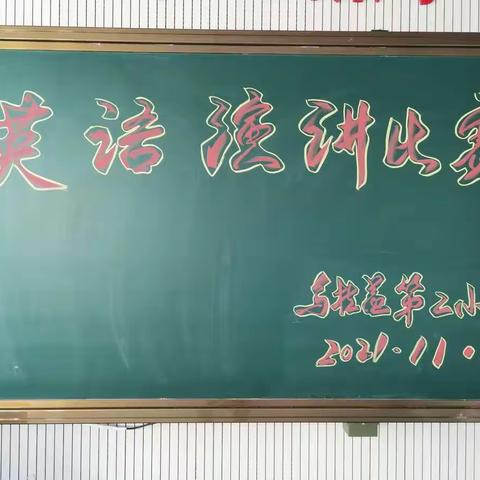 英语演讲比赛
乌拉盖第二小
2021·11·